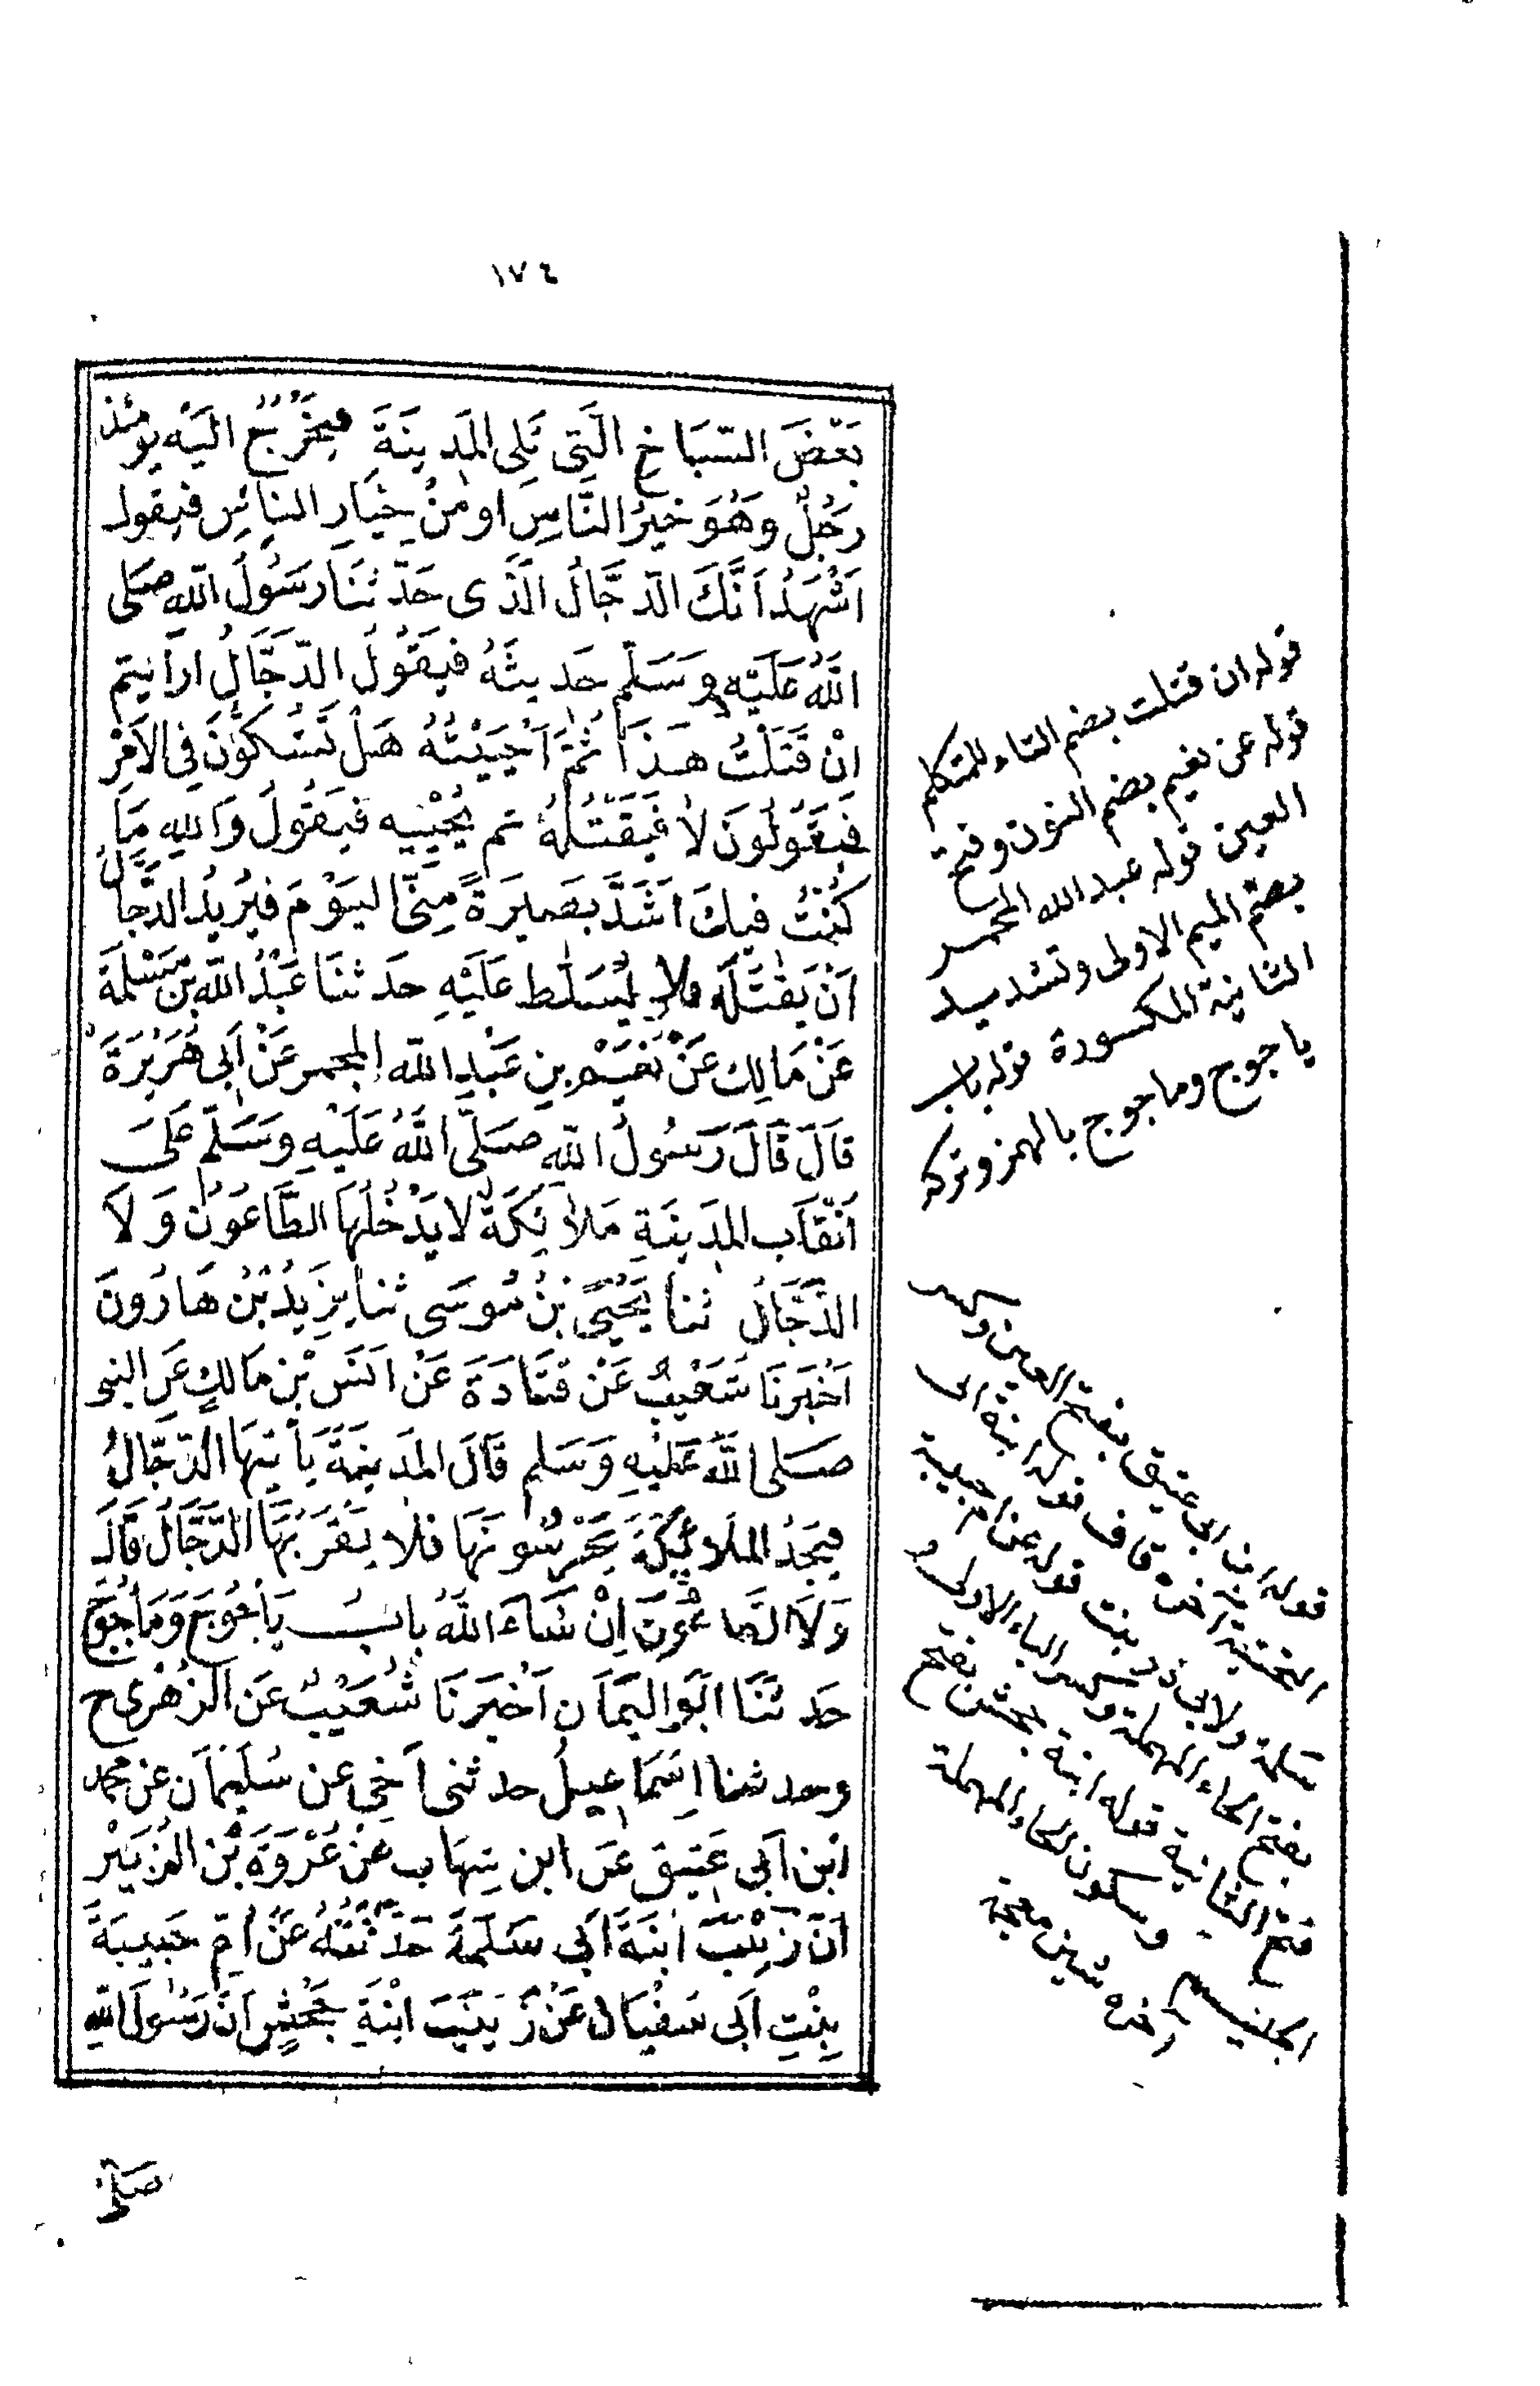 ١٧٤
بَعْضَ السِّبَاخِ الَّتِى تَلِى المَدِينَةَ فَيَخْرُجُ اِلَيْهِ يومئذ
رَجُلٌ وَهُوَ خَيْرُ النَّاسِ او مِنْ خِيَارِ النَّاسِ فيقول
اَشْهَدُ اَنَّكَ الدَّجَّالُ الَّذى حَدَّثَنَا رَسُولُ اللهِ صَلى
اللَّهُ عَلَيْهِ وَسَلَّم حَدِيثَهُ فَيَقُولُ الدَّجَّالُ اَرَاَيتم
اِنْ قَتَلْتُ هَذَا ثُمَّ اَحْيَيْتُهُ هَلْ تَشُكُّونَ فِى الاَمْرِ
فَيَقُولُونَ لَا فَيَقْتُلُهُ ثم يُحْيِيهِ فيَقُولُ وَاللهِ مَا
كُنْتُ فِيكَ اَشَدَّ بَصِيرَةً مِنِّى اليَوْمَ فَيُرِيدُ الدَّجَّالُ
اَنْ يَقْتُلَهُ فلا يُسَلَّط عَلَيْهِ حَدثنَا عَبْدُ اللهِ بْنُ مَسْلَمَةَ
عَنْ مَالِك عَنْ نُعَيْمِ بنِ عَبْدِ اللّه المجمر عَنْ اَبِى هُرَيْرَةَ
قَالَ قَالَ رَسُولُ اللّهِ صَلَّى اللَّهُ عَلَيْهِ وَسَلَّمَ عَلَى
اَنْقَابِ المَدِينَةِ مَلَائِكَةٌ لَا يَدْخُلُهَا الطَّاعُونُ وَلَا
الدَّجَّالُ ثنا يَحْيَى بْنُ مُوسَى ثنا يَزِيدُ بْنُ هَارُونَ
اَخْبَرَنَا شُعَيْبٌ عَنْ قَتَادَةَ عَنْ اَنَسِ بْنِ مَالِكٍ عَنِ النبى
صَلى اللَّهُ عَلَيْهِ وَسَلم قَالَ المَدِينَةُ يَأتِيهَا الدَّجَّالُ
فيَجِدُ المَلَائِكَةَ يَحْرُسُونَهَا فلَا يَقْرَبُهَا الدَّجَّالُ قَالَ
وَلَا الطَّاعُونُ اِنْ شَاءَ اللَّهُ بابُ يَاْجُوجَ وَمَاْجُوجَ
حَدثَنَا ابَو اليَمَانِ اَخْبَرَنَا شُعَيْبٌ عَنِ الزُهْرِى ح
وحدثنا اِسْمَاعِيلُ حدثنى اَخِى عن سُلَيْمَانَ عن محمد
ابْنِ اَبِى عَتِيق عَنِ ابن شِهَابٍ عَنْ عُرْوَةَ بْنِ الزُبَيْرِ
اَنَّ زَيْنَبَ ابنَةَ اَبِى سَلَمَةَ حَدَّثَتْهُ عَنْ اُمِّ حَبِيبَةَ
بِنْتِ اَبى سُفْيَان عَنْ زَيْنَبَ ابْنَةِ جَحْشٍ اَنَّ رَسُولَ اللهِ
صَلى
قوله ان قتلت بضم التاء للمتكلم
قوله عن نعيم بضم النون وفتح
العين قوله عبد الله المجمر
بضم الميم الاولى وتشديد
الثانية المكسورة قوله باب
ياجوج وماجوج بالهمز وتركه
قوله ابن ابى عتيق بفتح العين وكسر
التحتية اخره قاف قوله ابنة ابى
سلمة ولابى ذر بنت قوله عن ام حبيبة
بفتح الحاء المهملة وكسر الباء الاولى و
فتح الثانية قوله ابنة جحش بفتح
الجيم وسكون الحاء المهملة
اخره شين معجمة